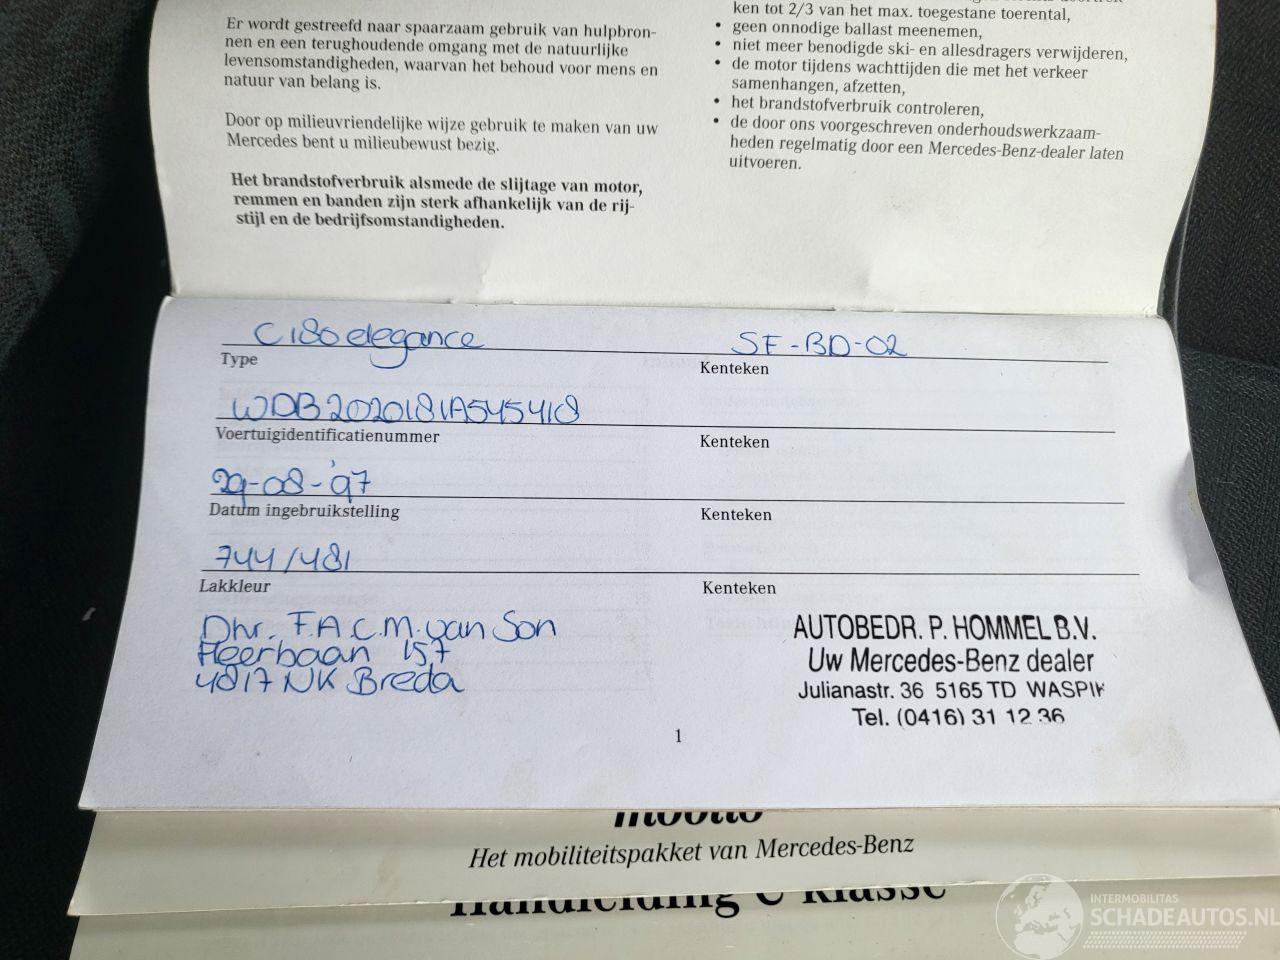 Er wordt gestreefd naar spaarzaam gebruik van hulpbron-
nen en een terughoudende omgang met de natuurlijke
levensomstandigheden, waarvan het behoud voor mens en
natuur van belang is.
Door op milieuvriendelijke wijze gebruik te maken van uw
Mercedes bent u milieubewust bezig.
Het brandstofverbruik alsmede de slijtage van motor,
remmen en banden zijn sterk afhankelijk van de rij-
stijl en de bedrijfsomstandigheden.
ken tot 2/3 van het max. toegestane toerental,
• geen onnodige ballast meenemen,
• niet meer benodigde ski- en allesdragers verwijderen,
• de motor tijdens wachttijden die met het verkeer
samenhangen, afzetten,
• het brandstofverbruik controleren,
• de door ons voorgeschreven onderhoudswerkzaam-
heden regelmatig door een Mercedes-Benz-dealer laten
uitvoeren.
C180 elegance
Type
SF-BD-02
Kenteken
WDB2020181A545418
Voertuigidentificatienummer
Kenteken
29-08-'97
Datum ingebruikstelling
Kenteken
744/481
Lakkleur
Kenteken
Dhr. F.A.C.M. van Son
Heerbaan 157
4817 NK Breda
AUTOBEDR. P. HOMMEL B.V.
Uw Mercedes-Benz dealer
Julianastr. 36 5165 TD WASPIK
Tel. (0416) 31 12 36
1
Het mobiliteitspakket van Mercedes-Benz
Handleiding C-Klasse
INTERMOBILITAS
SCHADEAUTOS.NL